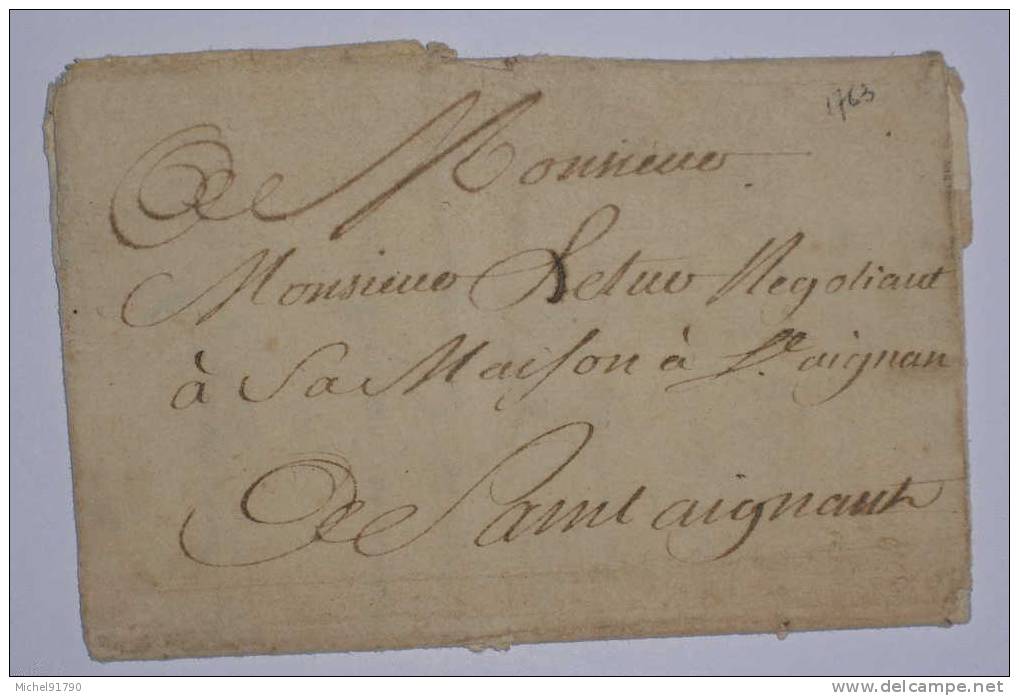 1763
De Monsieur
Monsieur Negotiant
à Sa Maison à St. aignan
De Saint aignant
Michel91790
www.delcampe.net